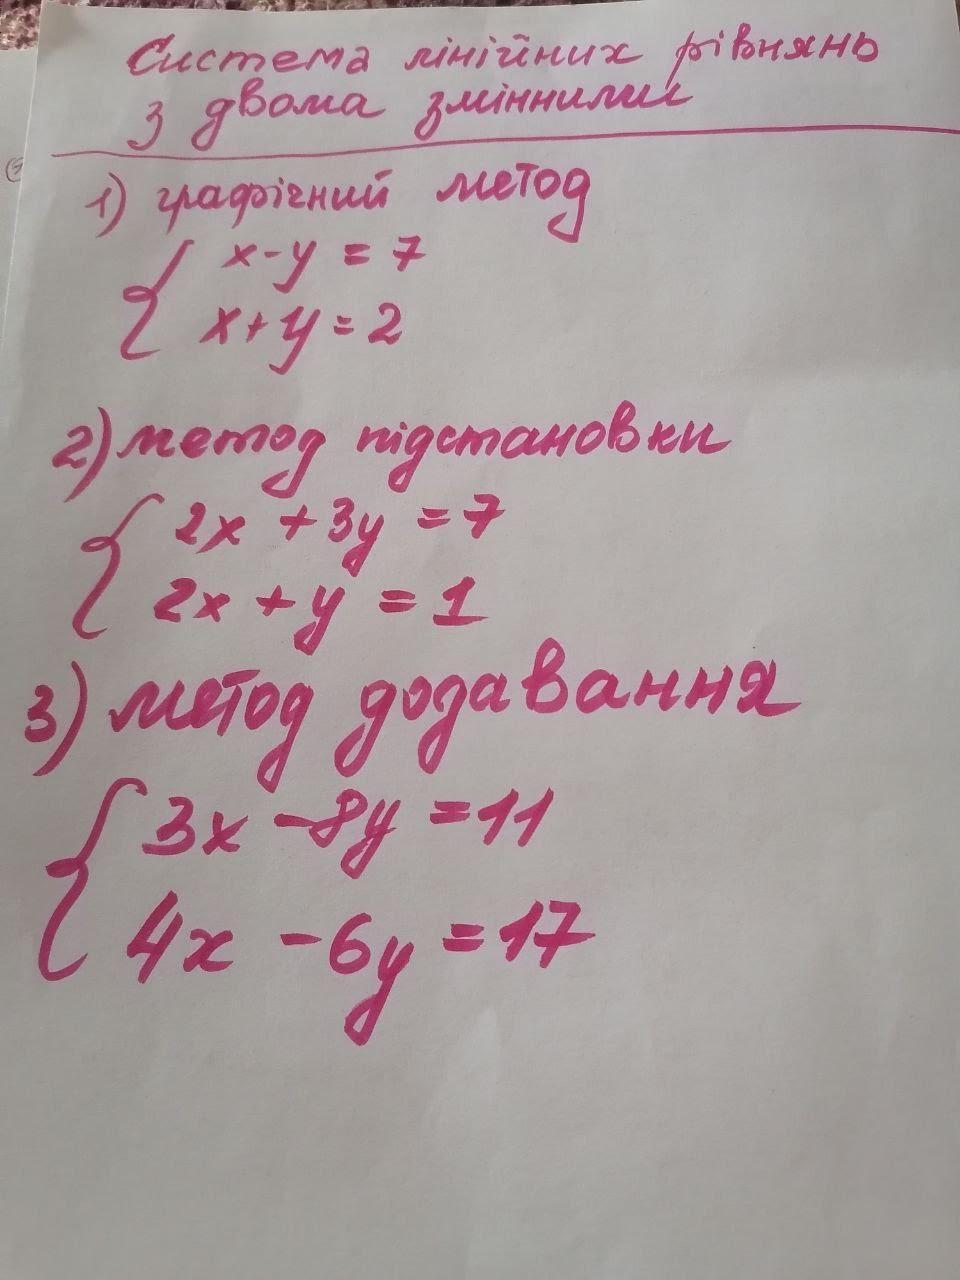 Система лінійних рівнянь
з двома зміннними
1) графічний метод
{ x-y = 7
x+y = 2
2) метод підстановки
{ 2x + 3y = 7
2x + y = 1
3) метод додавання
{ 3x - 8y = 11
4x - 6y = 17